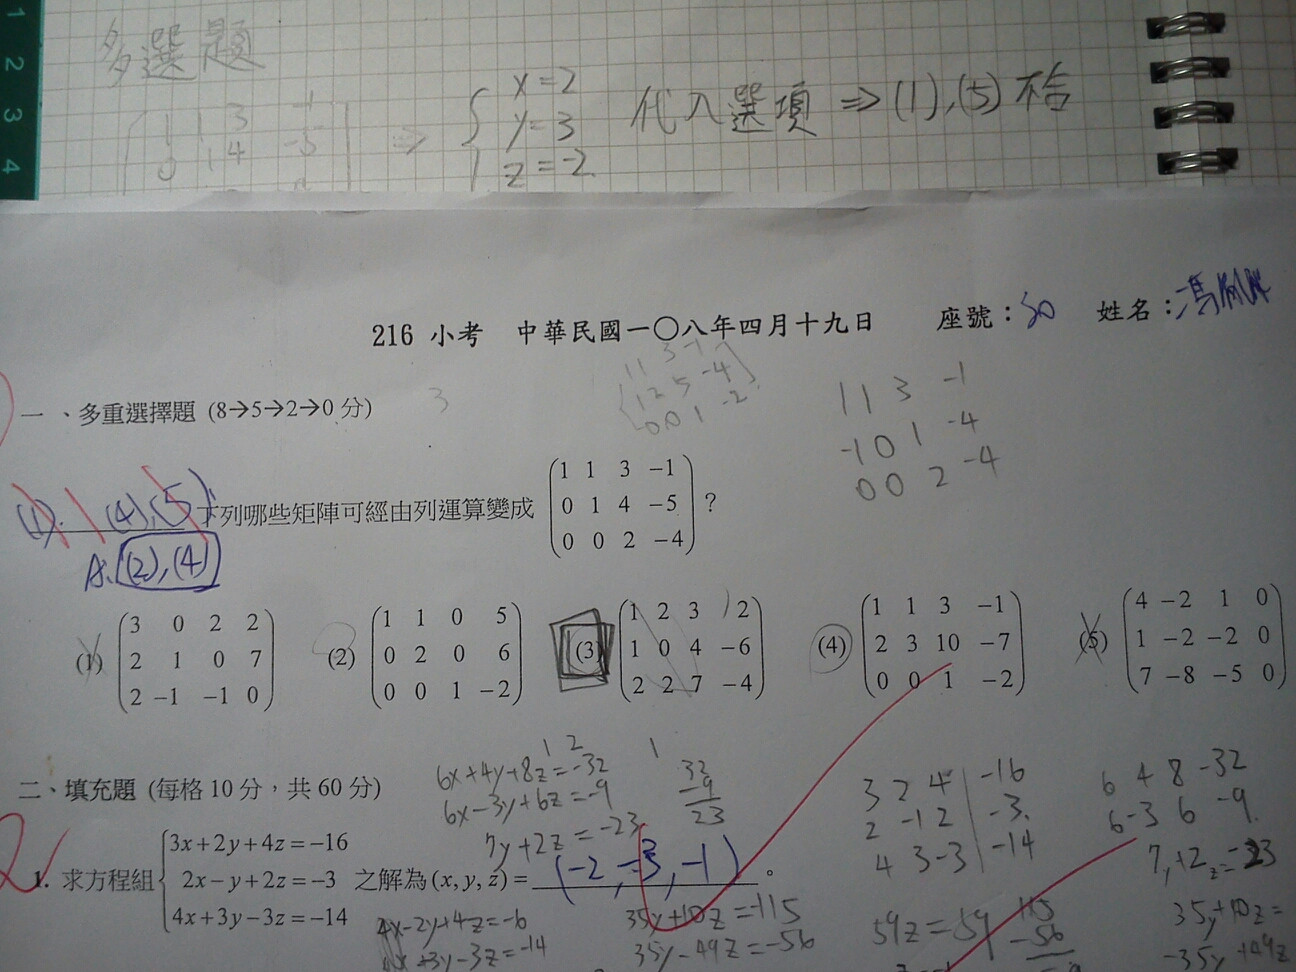 1
2
3
4
多選題
1 1 3 -1
0 1 4 -5
⇒ { x=2
y=3
z=-2
代入選項 ⇒ (1),(5)不合
216 小考 中華民國一〇八年四月十九日 座號：30 姓名：馮
一、多重選擇題 (8→5→2→0 分) 3
1 1 3 -1
1 2 5 -4
0 0 1 -2
1 1 3 -1
-1 0 1 -4
0 0 2 -4
(1). (4),(5) 下列哪些矩陣可經由列運算變成
1 1 3 −1
0 1 4 −5
0 0 2 −4
？
A: (2),(4)
(1)
3 0 2 2
2 1 0 7
2 −1 −1 0
(2)
1 1 0 5
0 2 0 6
0 0 1 −2
(3)
1 2 3 12
1 0 4 −6
2 2 7 −4
(4)
1 1 3 −1
2 3 10 −7
0 0 1 −2
(5)
4 −2 1 0
1 −2 −2 0
7 −8 −5 0
二、填充題 (每格 10 分，共 60 分)
1 2
6x+4y+8z=-32
6x-3y+6z=-9
7y+2z=-23
1
32
-9
23
3 2 4 | -16
2 -1 2 | -3
4 3 -3 | -14
6 4 8 -32
6 -3 6 -9
7y+2z=-23
1. 求方程組
3x+2y+4z=−16
2x−y+2z=−3
4x+3y−3z=−14
之解為(x,y,z)= (-2,-3,-1) 。
4x-2y+4z=-6
4x+3y-3z=-14
35y+10z=-115
35y-49z=-56
59z=-59
115
-56
35y+10z=
-35y+49z